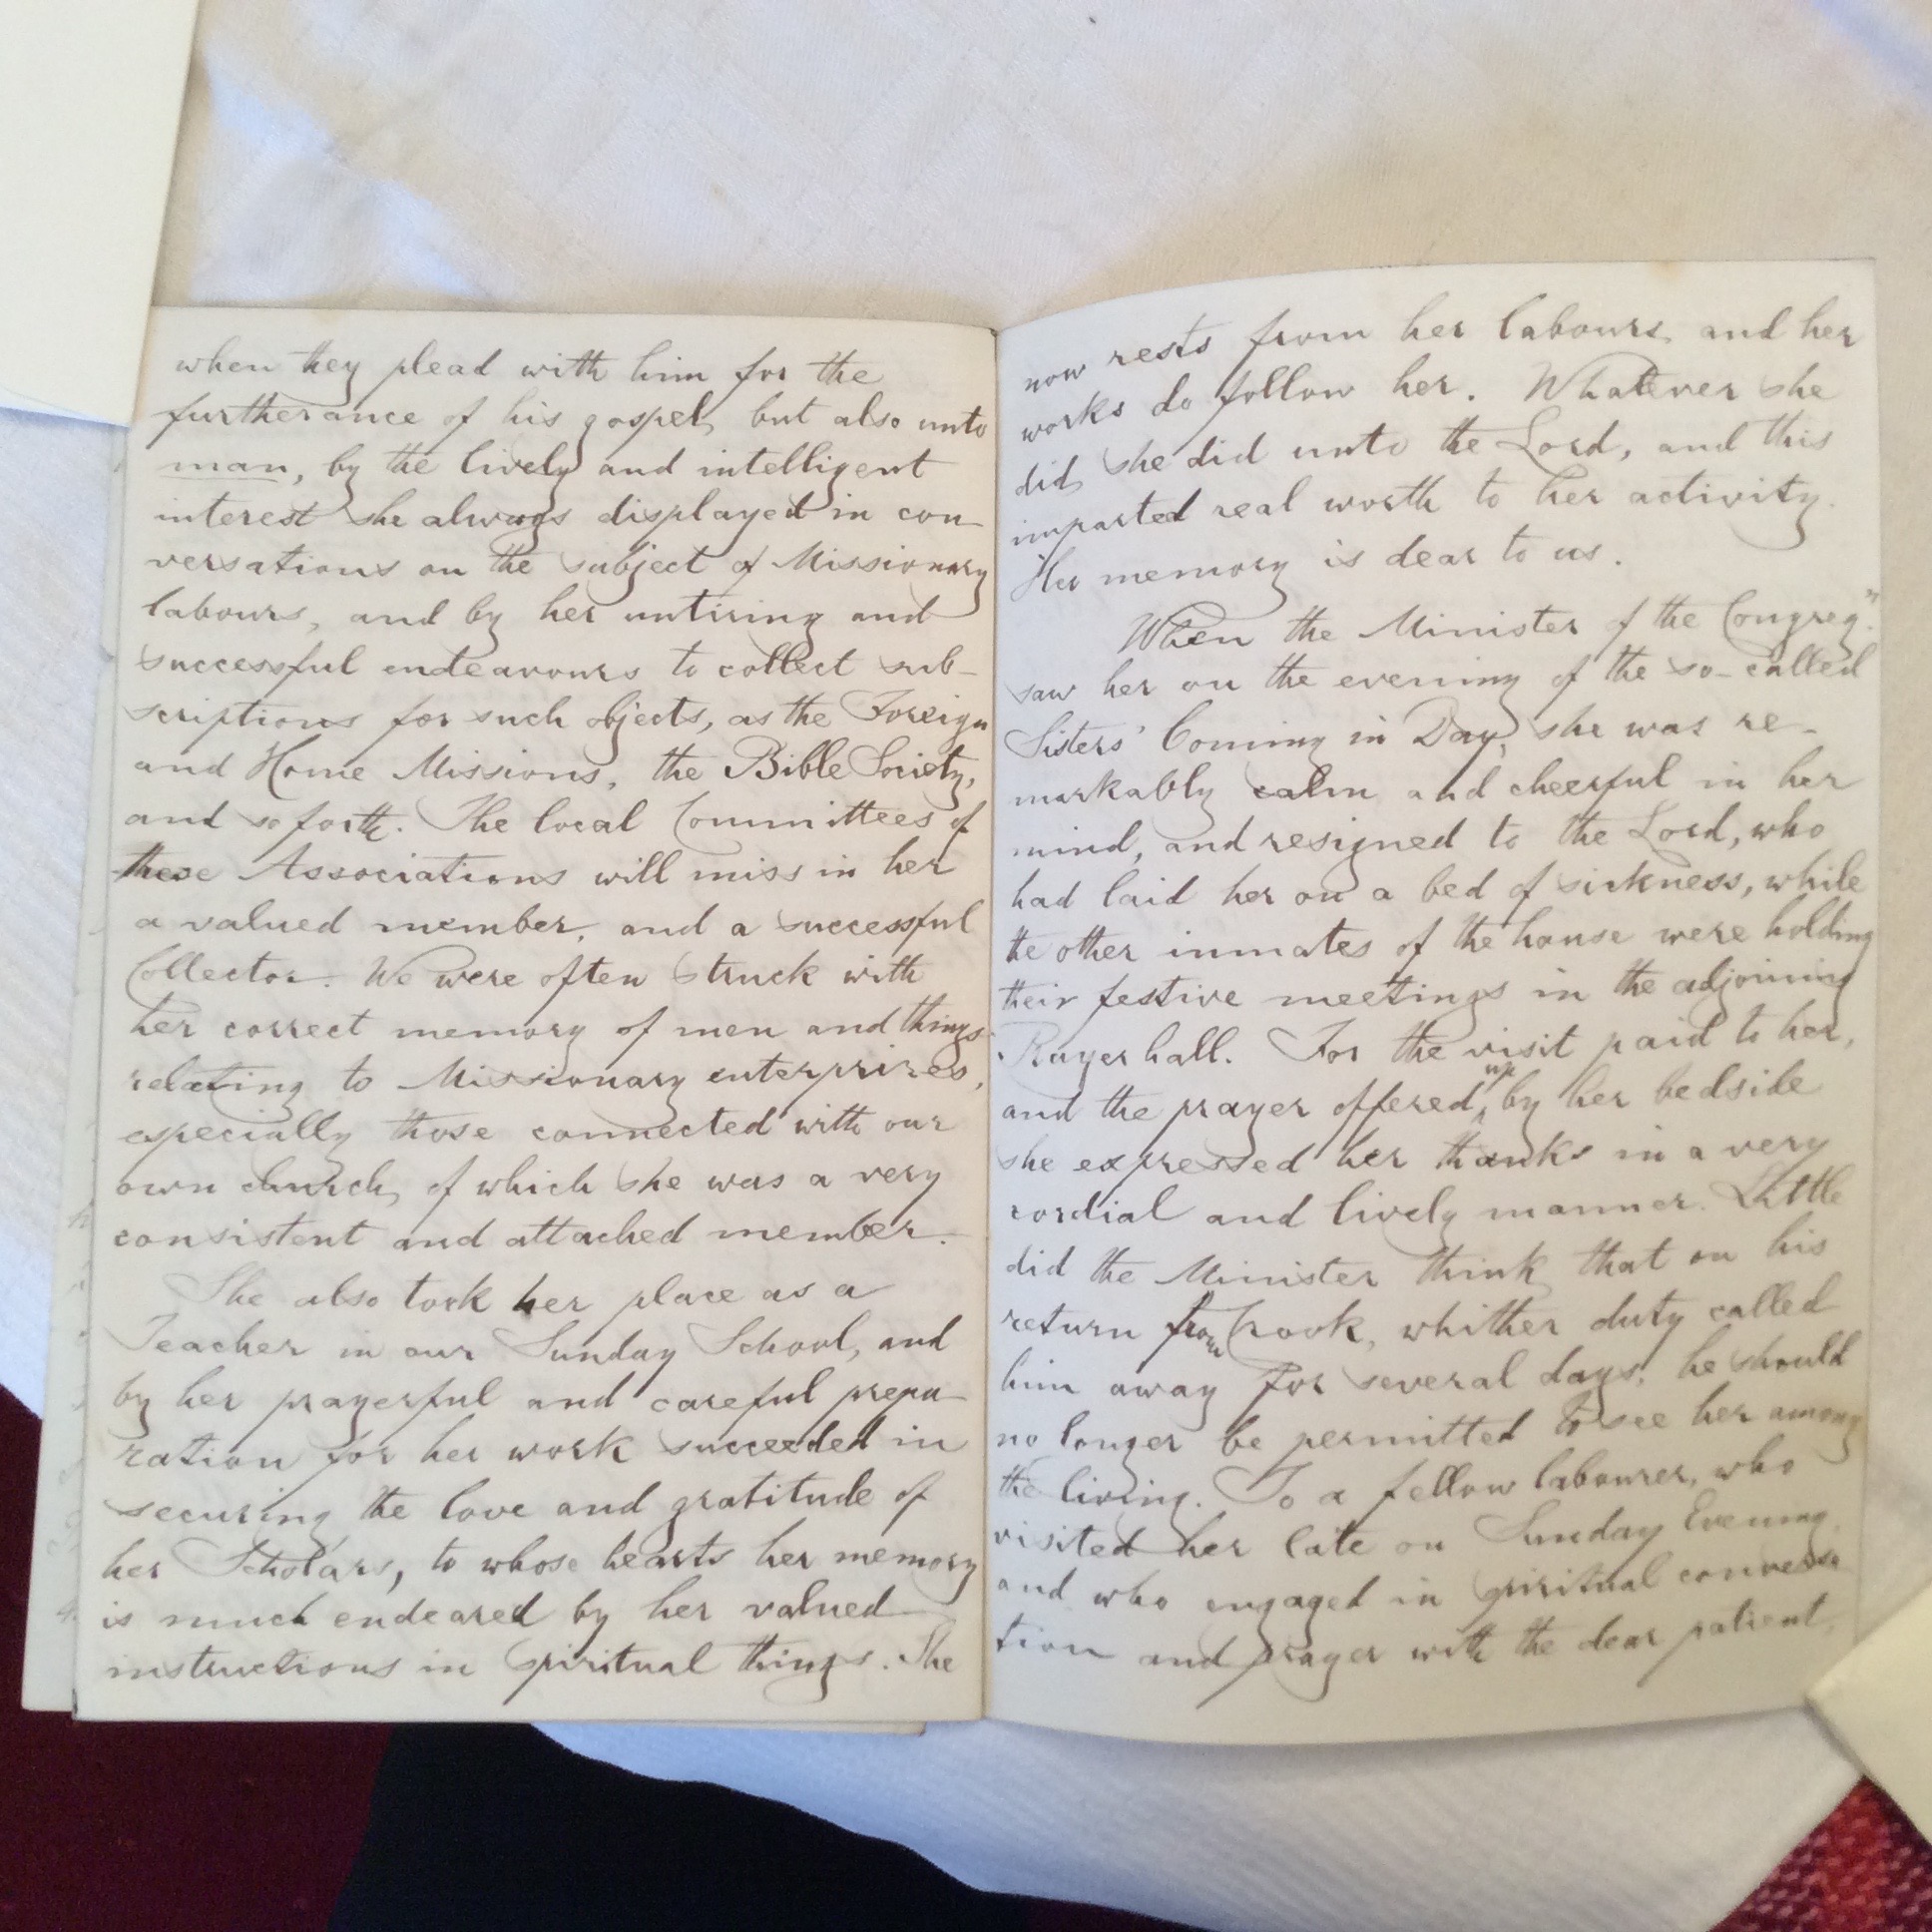 when they plead with him for the
furtherance of his gospel, but also unto
man, by the lively and intelligent
interest she always displayed in con-
versations on the subject of Missionary
labours, and by her untiring and
successful endeavours to collect sub-
scriptions for such objects, as the Foreign
and Home Missions, the Bible Society,
and so forth. The local Committees of
these Associations will miss in her
a valued member, and a successful
Collector. We were often struck with
her correct memory of men and things
relating to Missionary enterprizes,
especially those connected with our
own church, of which she was a very
consistent and attached member.
She also took her place as a
Teacher in our Sunday School, and
by her prayerful and careful prepa-
ration for her work succeeded in
securing the love and gratitude of
her Scholars, to whose hearts her memory
is much endeared by her valued
instructions in Spiritual things. She
now rests from her labours, and her
works do follow her. Whatever she
did, she did unto the Lord, and this
imparted real worth to her activity.
Her memory is dear to us.
When the Minister of the Congregn.
saw her on the evening of the so-called
Sisters' Coming in Day, she was re-
markably calm and cheerful in her
mind, and resigned to the Lord, who
had laid her on a bed of sickness, while
the other inmates of the house were holding
their festive meetings in the adjoining
Prayer hall. For the visit paid to her,
and the prayer offered up by her bedside
she expressed her thanks in a very
cordial and lively manner. Little
did the Minister think that on his
return from Crook, whither duty called
him away for several days, he should
no longer be permitted to see her among
the living. To a fellow labourer, who
visited her late on Sunday Evening,
and who engaged in Spiritual conversa
tion and prayer with the dear patient,